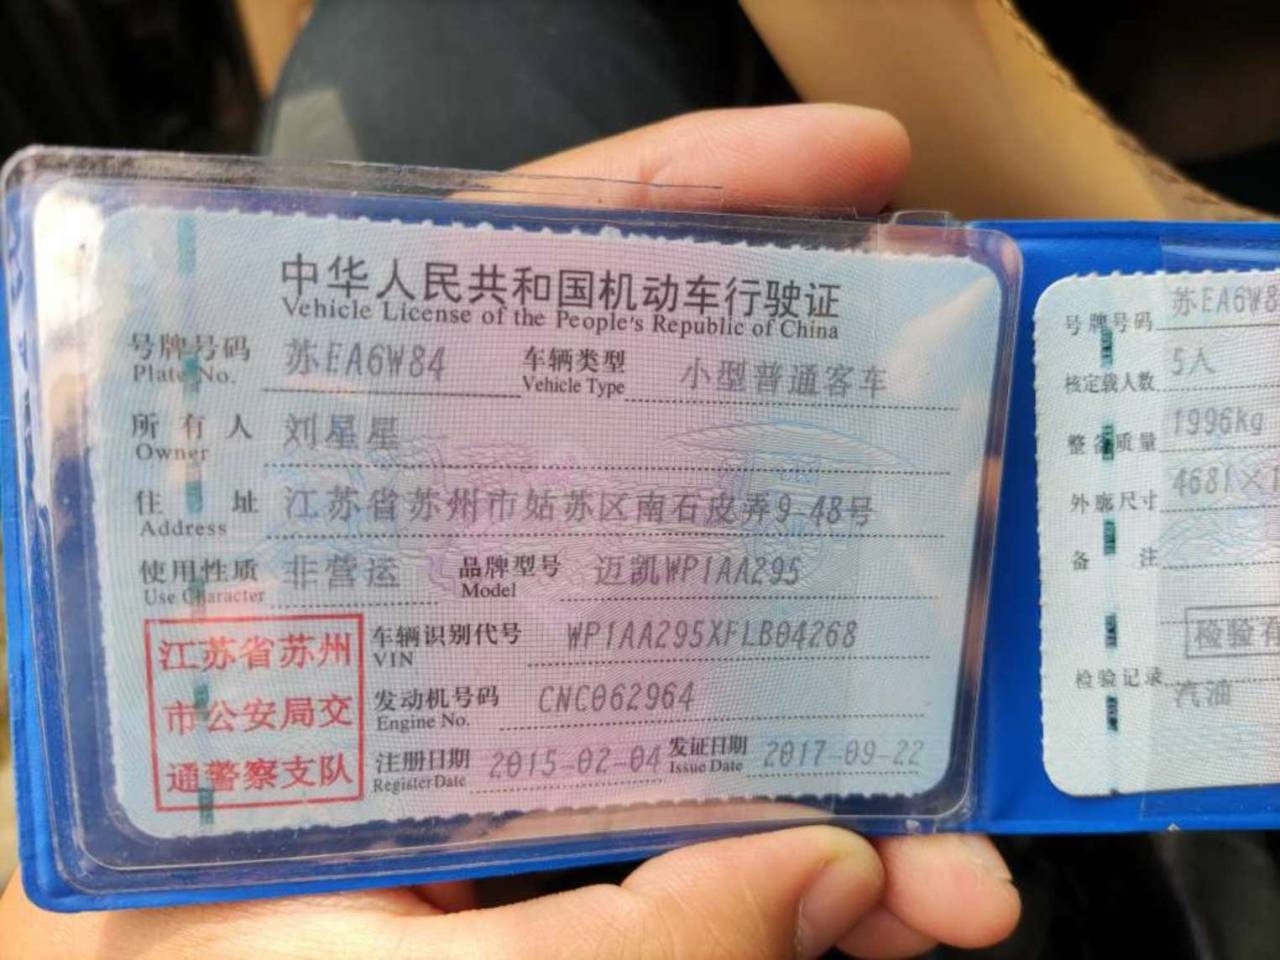 中华人民共和国机动车行驶证
Vehicle License of the People's Republic of China
号牌号码 苏EA6W84 车辆类型 小型普通客车
Plate No. Vehicle Type
所有人 刘星星
Owner
住址 江苏省苏州市姑苏区南石皮弄9-48号
Address
使用性质 非营运 品牌型号 迈凯WP1AA295
Use Character Model
车辆识别代号 WP1AA295XFLB04268
VIN
发动机号码 CNC062964
Engine No.
注册日期 2015-02-04 发证日期 2017-09-22
Register Date Issue Date
江苏省苏州
市公安局交
通警察支队
号牌号码 苏EA6W8
核定载人数 5人
整备质量 1996kg
外廓尺寸 4681×1
备注
检验有
检验记录
汽油